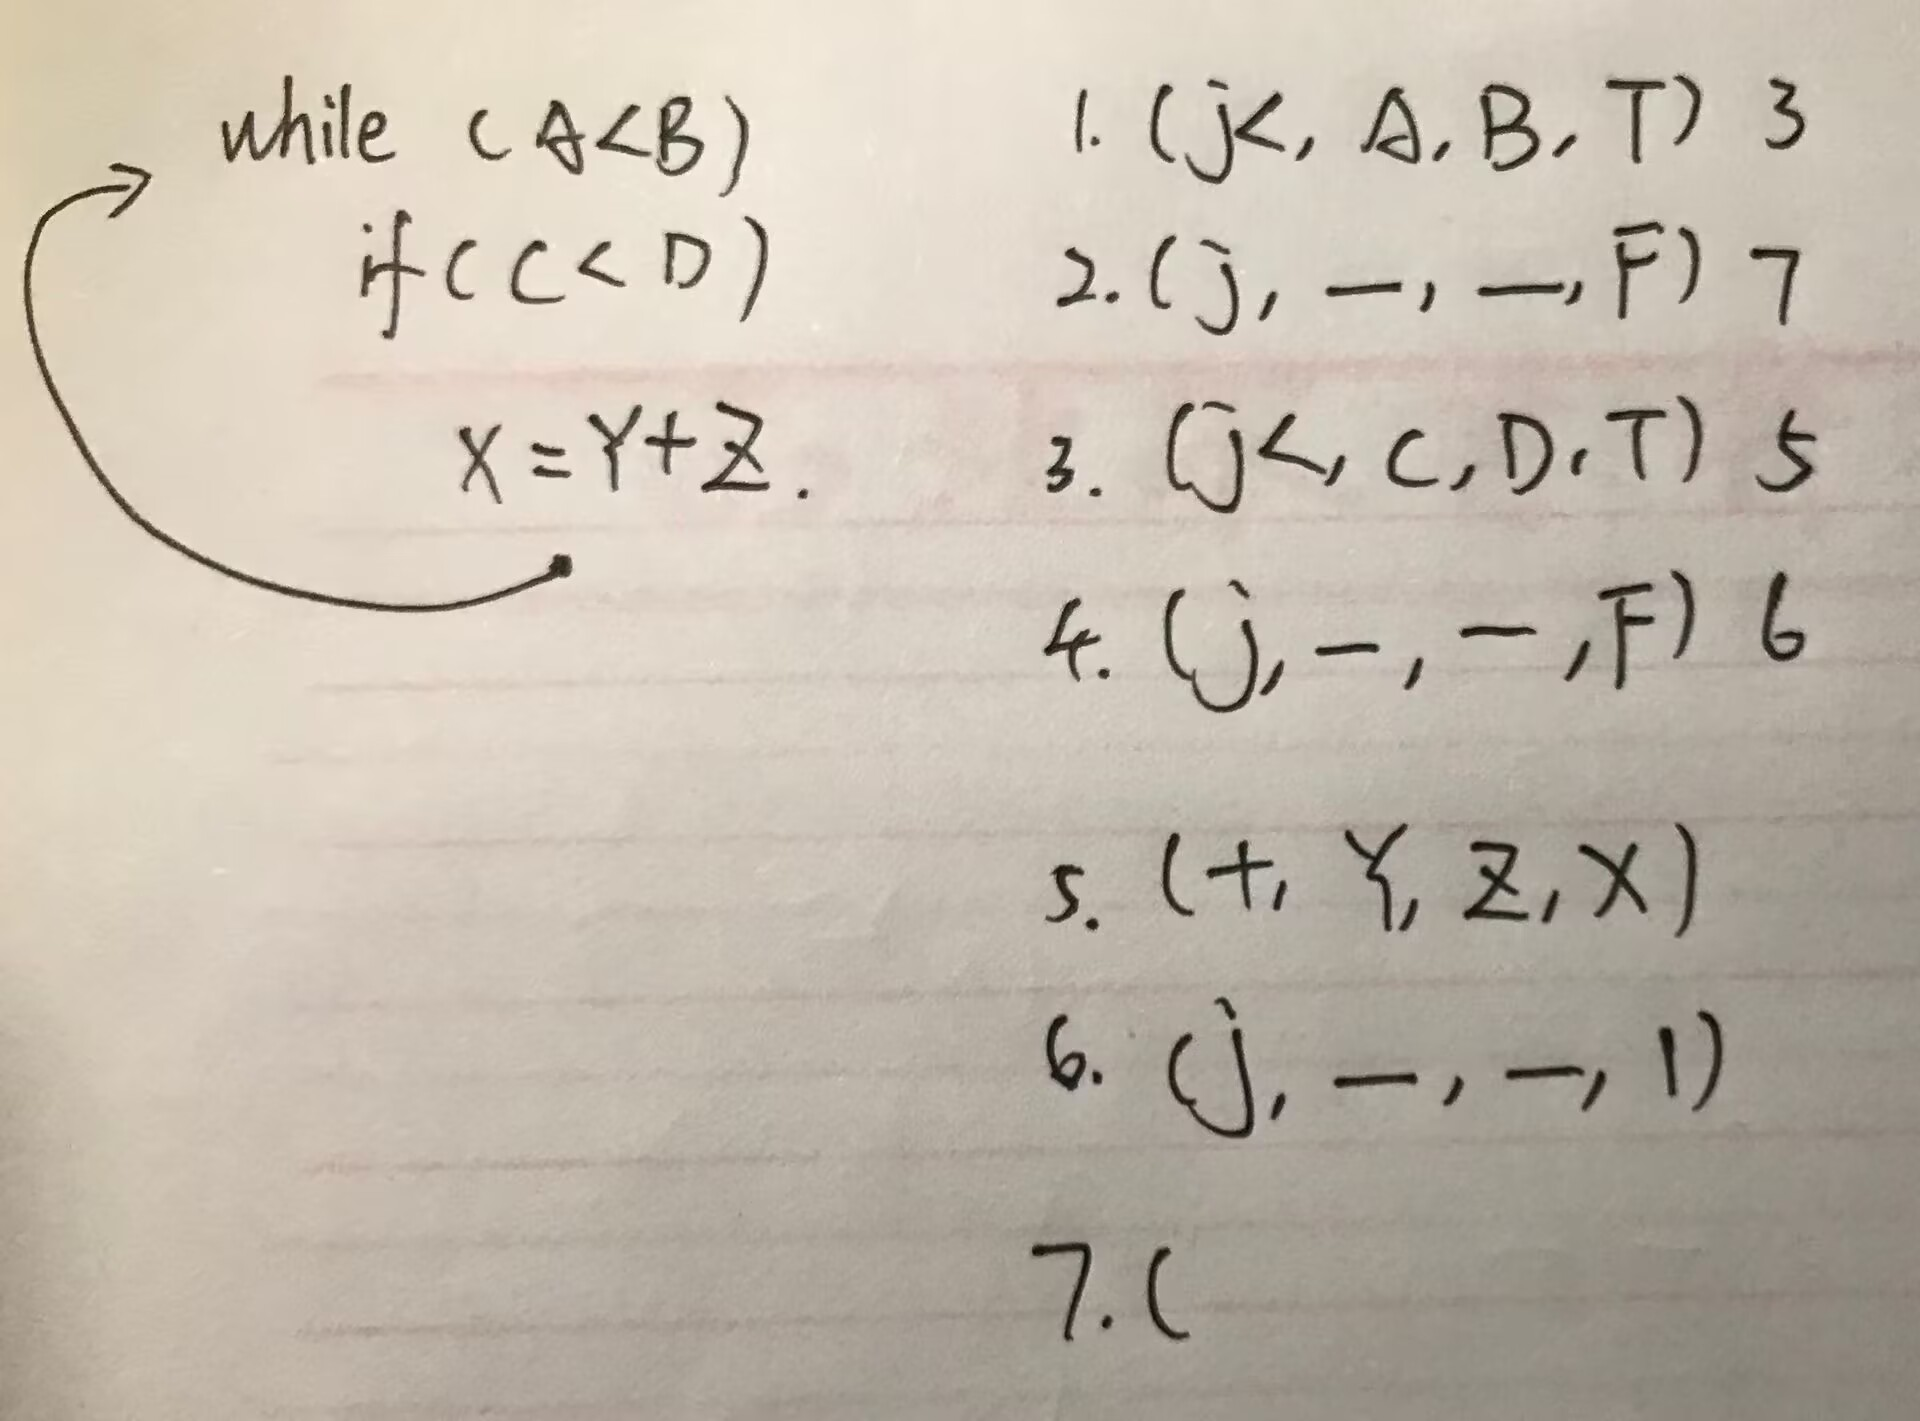 while (A<B)
if (C<D)
X=Y+Z.
1. (j<, A, B, T) 3
2. (j, —, —, F) 7
3. (j<, C, D, T) 5
4. (j, —, —, F) 6
5. (+, Y, Z, X)
6. (j, —, —, 1)
7. (